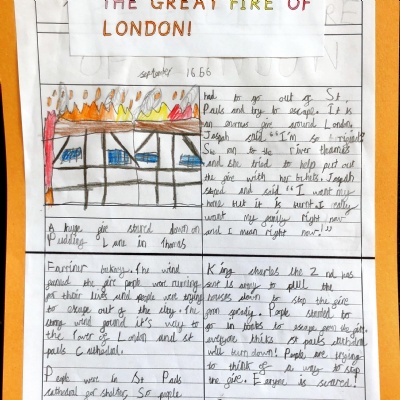 THE GREAT FIRE OF
LONDON!
september 16.56
A huge fire stared down on
Pudding Lane in Thomas
Farriner bakery. The wind
pushed the fire people were running
for their lives and people were trying
to escape out of the city. The
strong wind found it's way to
the Tower of London and st
pauls Cathedral.
People were in St Pauls
cathedral for shelter, So people
had to go out of St.
Pauls and try to escape. It is
an enormous fire around London.
Joseph said "I'm so
on to the river thames
and she tried to help put out
the fire with her buckets. Joseph
stared and said "I want my
home but it is burnt. I really
want my family right now
and I mean right now!"
King charles the 2nd has
sent is army to pull the
houses down to stop the fire
from spredig. People started to
go in boats to escape from the fire.
everyone thinks st pauls cathedral
will burn down! People are trying
to think of a way to stop
the fire. Everyone is scared!